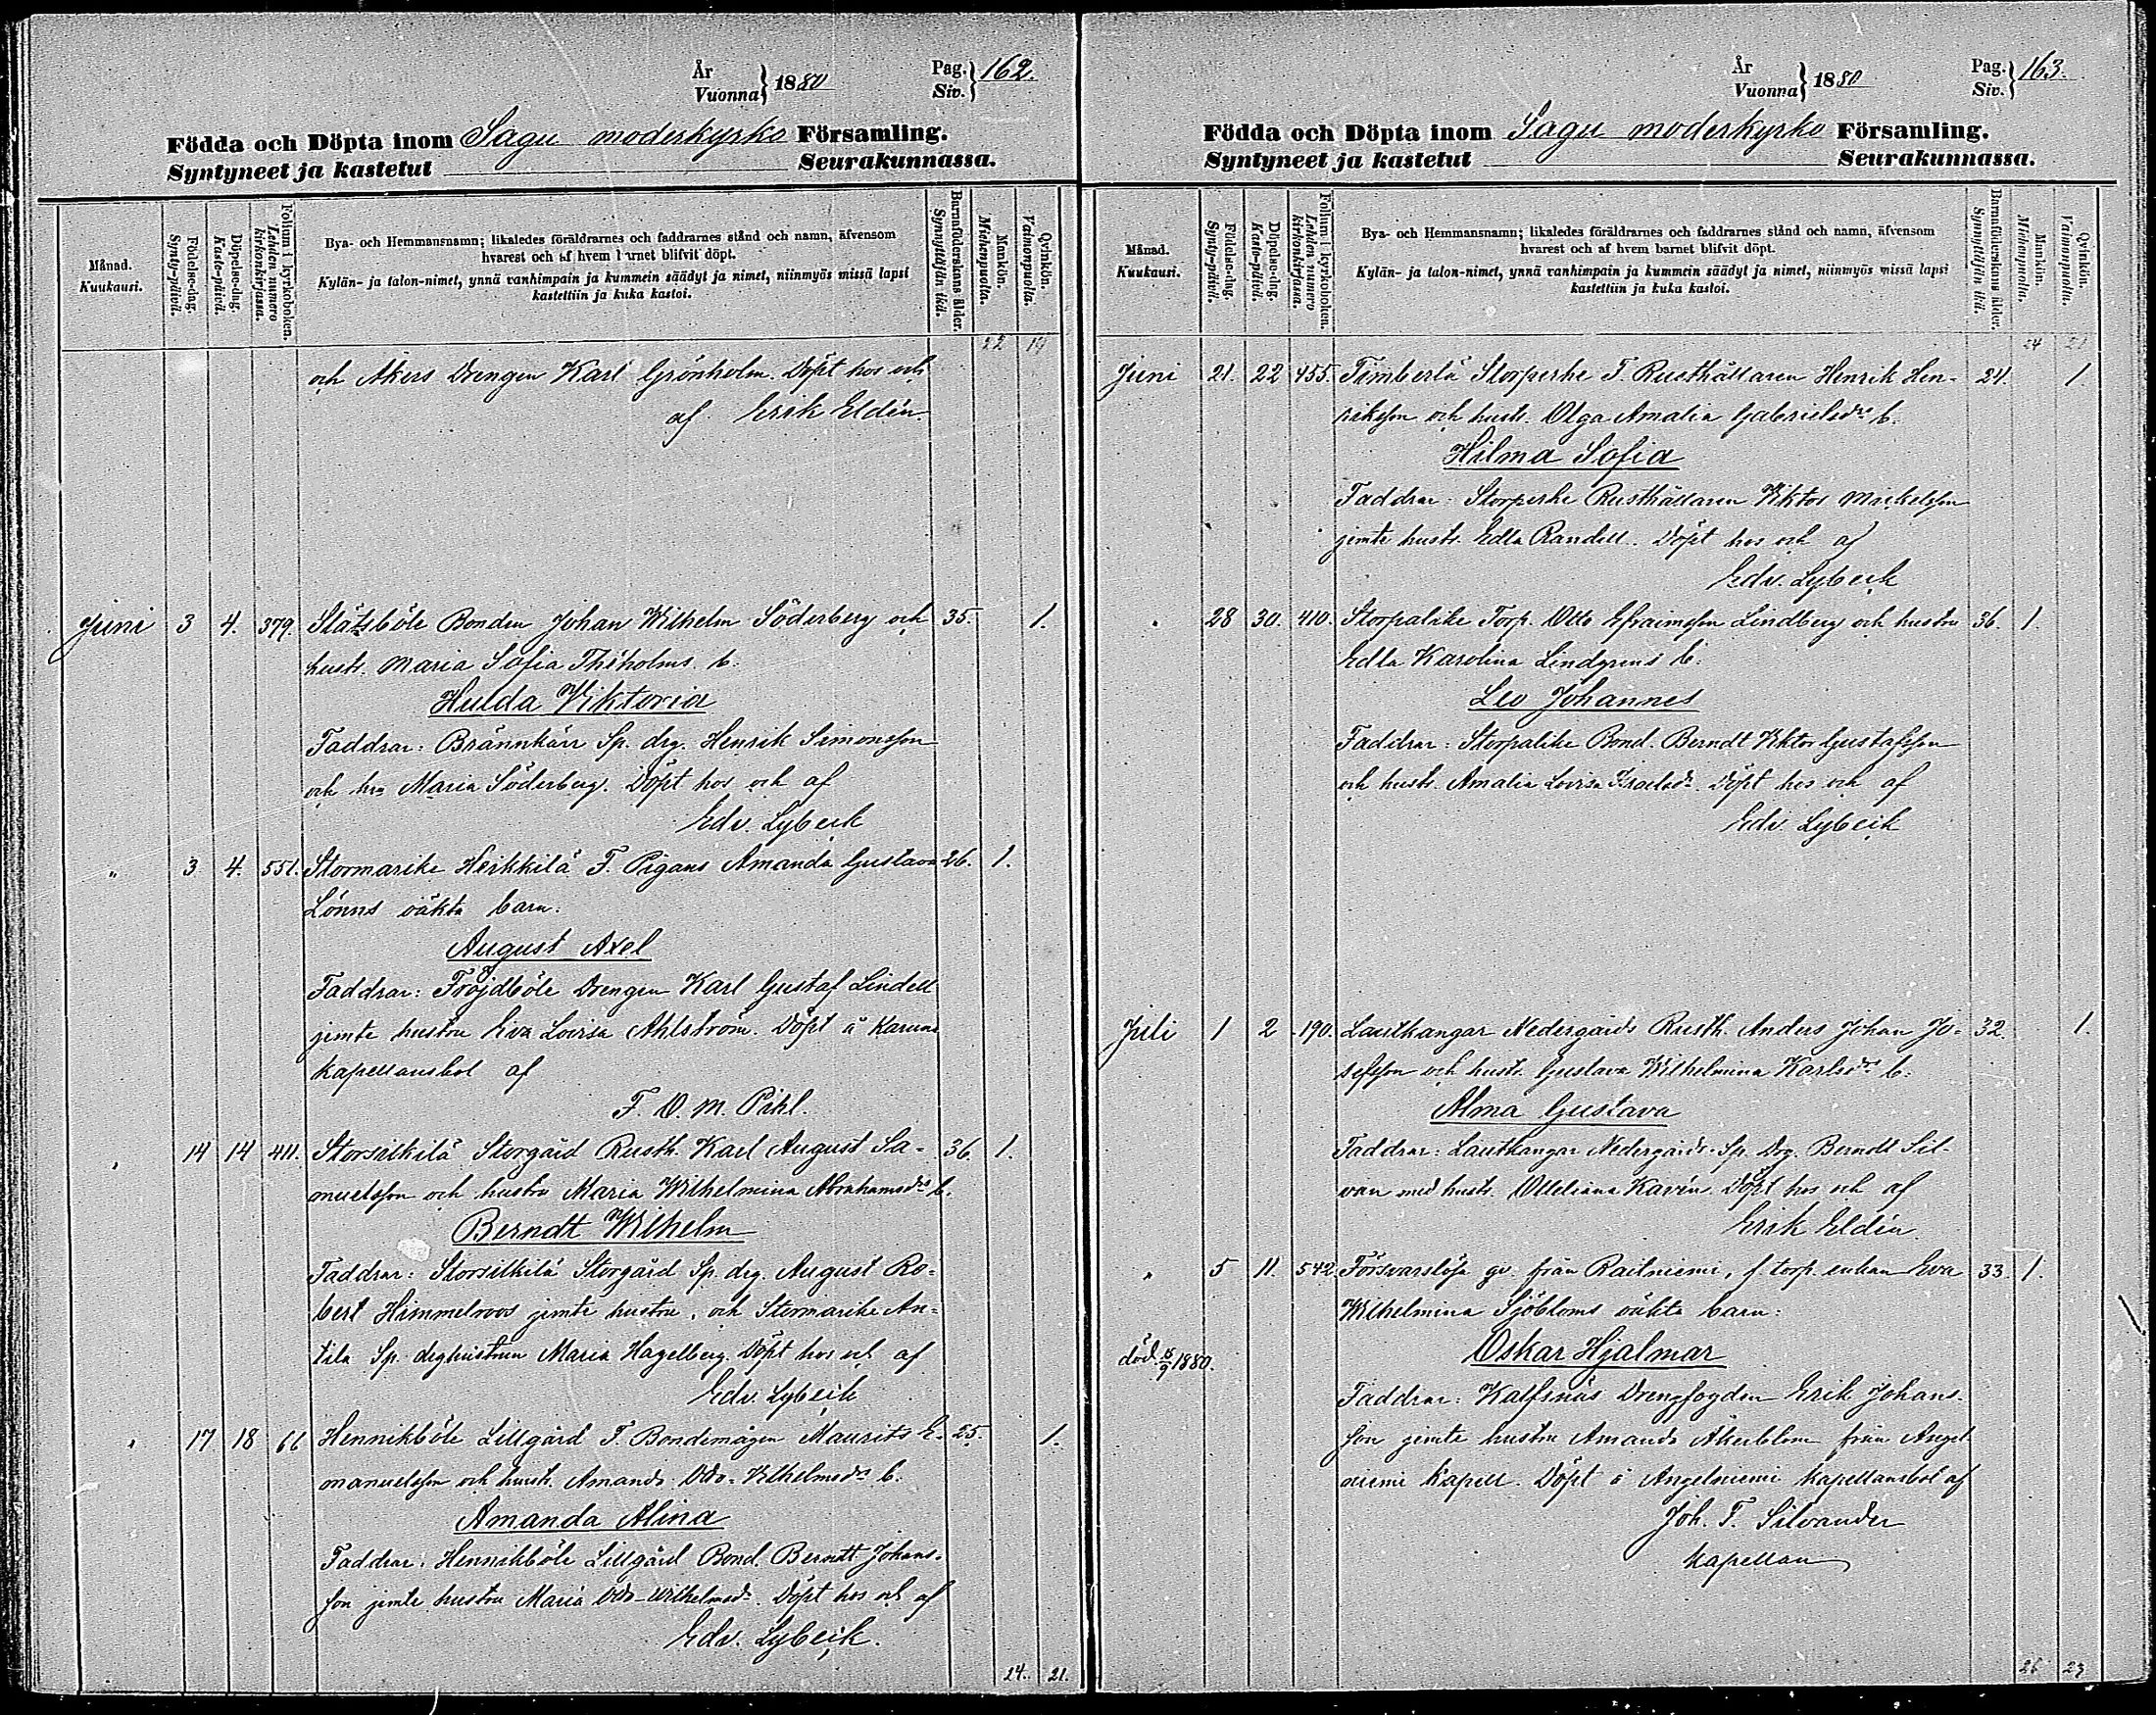 År
Vuonna } 1880
Pag.
Siv. } 162.
Födda och Döpta inom Sagu moderkyrko Församling.
Syntyneet ja kastetut Seurakunnassa.
Månad.
Kuukausi.
Födelse-dag.
Synty-päivä.
Döpelse-dag.
Kaste-päivä.
Folium i kyrkoboken.
Lehden numero kirkonkirjassa.
Bya- och Hemmansnamn; likaledes föräldrarnes och faddrarnes stånd och namn, äfvensom
hvarest och af hvem barnet blifvit döpt.
Kylän- ja talon-nimet, ynnä vanhimpain ja kummein säädyt ja nimet, niinmyös missä lapsi
kastettiin ja kuka kastoi.
Barnaföderskans ålder.
Synnyttäjän ikä.
Mankön.
Miehenpuolta.
Qvinkön.
Vaimonpuolta.
22 19
och Åkers Drengen Karl Grönholm. Döpt hos och
af Erik Eldén.
Juni 3 4. 379. Slätsböle Bonden Johan Wilhelm Söderberg och 35. 1.
hustr. Maria Sofia Thiholms b.
Hulda Viktoria
Faddrar: Brännkärr Sp. drg. Henrik Simonsson
och hu Maria Söderberg. Döpt hos och af
Edv. Lybeck
" 3 4. 551. Stormarike Heikkilä F. Pigans Amanda Gustava 26. 1.
Lönns oäkta barn:
August Axel
Faddrar: Fröjdböle Drengen Karl Gustaf Lindell
jemte hustru Eva Lovisa Ahlström. Döpt å Karuna
kapellansbol af
F. O. M. Pihl.
" 14 14 411. Storsilkilä Storgård Rusth. Karl August Sa- 36. 1.
muelsson och hustru Maria Wilhelmina Abrahamsdrs b.
Berndt Wilhelm
Faddrar: Storsilkilä Storgård Sp. drg. August Ro-
bert Himmelroos jemte hustru, och Stormarike An-
tila Sp. drghustrun Maria Hagelberg. Döpt hos och af
Edv. Lybeck
" 17 18 66 Hennikböle Lillgård F. Bondemågen Maurits E- 25. 1.
manuelsson och hustr. Amanda Vilhelmsdrs b.
Amanda Alina
Faddrar: Hennikböle Lillgård Bond. Berndt Johans-
son jemte hustru Maria Wilhelmsdr. Döpt hos och af
Edv. Lybeck.
24. 21.
År
Vuonna } 1880
Pag.
Siv. } 163.
Födda och Döpta inom Sagu moderkyrko Församling.
Syntyneet ja kastetut Seurakunnassa.
Månad.
Kuukausi.
Födelse-dag.
Synty-päivä.
Döpelse-dag.
Kaste-päivä.
Folium i kyrkoboken.
Lehden numero kirkonkirjassa.
Bya- och Hemmansnamn; likaledes föräldrarnes och faddrarnes stånd och namn, äfvensom
hvarest och af hvem barnet blifvit döpt.
Kylän- ja talon-nimet, ynnä vanhimpain ja kummein säädyt ja nimet, niinmyös missä lapsi
kastettiin ja kuka kastoi.
Barnaföderskans ålder.
Synnyttäjän ikä.
Mankön.
Miehenpuolta.
Qvinkön.
Vaimonpuolta.
24 21
Juni 21. 22 455. Timberlä Storperhe F. Rusthållaren Henrik Hen- 24. 1.
riksson och hustr. Olga Amalia Gabrielsdrs b.
Hilma Sofia
Faddrar: Storperhe Rusthållaren Viktor Mickelsson
jemte hustr. Edla Randell. Döpt hos och af
Edv. Lybeck
" 28 30. 410. Storpalike Torp. Otto Efraimsson Lindberg och hustru 36. 1.
Edla Karolina Lindgrens b.
Leo Johannes
Faddrar: Storpalike Bond. Berndt Viktor Gustafsson
och hustr. Amalia Lovisa Israelsdr. Döpt hos och af
Edv. Lybeck
Juli 1 2 190. Lautkangar Nedergårds Rusth. Anders Johan Jo- 32. 1.
sefsson och hustr. Gustava Wilhelmina Karlsdrs b.
Alma Gustava
Faddrar: Lautkangar Nedergårds Sp. Drg. Berndt Sil-
van med hustr. Ottiliana Kavén. Döpt hos och af
Erik Eldén.
" 5 11. 542. Försvarslösa qv. från Railniemi, f. torp. enkan Eva 33. 1.
Wilhelmina Sjöbloms oäkta barn:
död 18/9 1880.
Oskar Hjalmar
Faddrar: Kalfsnäs Drengfogden Erik Johans-
son jemte hustru Amanda Åkerblom från Angel-
niemi kapell. Döpt å Angelniemi kapellansbol af
Joh. F. Silvander
Kapellan
26 23